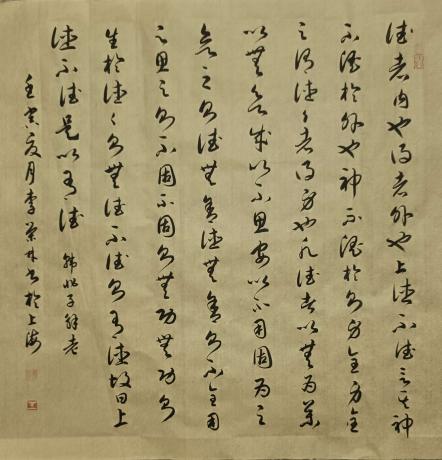 德者内也得者外也上德不德言其神
不淫於外也神不淫於則身全身全
之謂德々者得身也凡德者以無為集
以無欲成以不思安以不用固為之
欲之則德無舍德無舍則不全用
之思之則不固不固則無功無功則
生於德々則無德不德則有德故曰上
德不德是以有德 韓非子解老
壬寅夏月李林书於上海